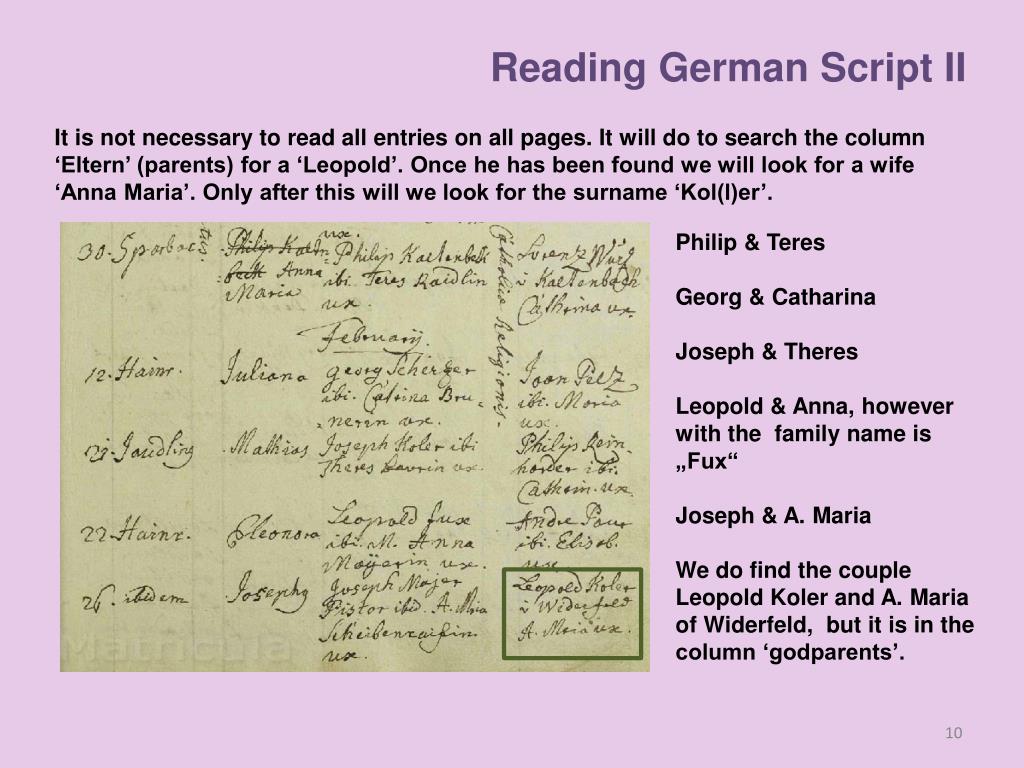 Reading German Script II
It is not necessary to read all entries on all pages. It will do to search the column
‘Eltern’ (parents) for a ‘Leopold’. Once he has been found we will look for a wife
‘Anna Maria’. Only after this will we look for the surname ‘Kol(l)er’.
ux.
30. Philip Philip Lorenz
Anna ibi. Teres
Maria ux. Catharina ux.
Catholicae Religionis.
February.
12. Hainr. Juliana Georg Joan Pelz
ibi. Catrina Bru- ibi. Maria
nerin ux. ux.
Mathias Joseph Koler ibi Philip
Theres ux. ibi.
ux.
22. Hainr. Eleonora Leopold Fux Andre
ibi. M. Anna ibi. Elisab.
Mayerin ux. ux.
26. ibidem Josephg Joseph Majer Leopold Koler
Pistor ibid. A. Maria v Widerfeld
A. Maria ux.
ux.
Matricula
Philip & Teres
Georg & Catharina
Joseph & Theres
Leopold & Anna, however
with the family name is
„Fux“
Joseph & A. Maria
We do find the couple
Leopold Koler and A. Maria
of Widerfeld, but it is in the
column ‘godparents’.
10